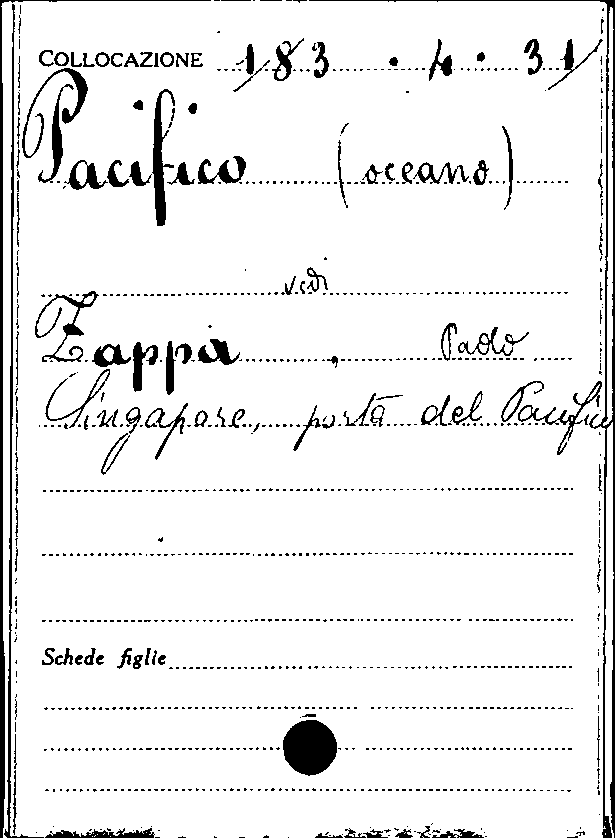 COLLOCAZIONE 183 . 4 . 31
Pacifico (oceano)
vedi
Zappa , Paolo
Singapore, porta del Pacifico
Schede figlie